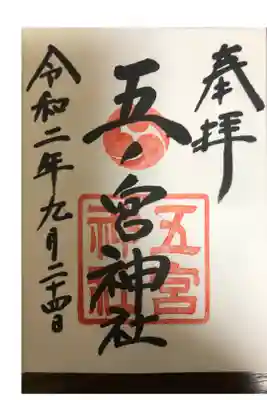 奉拝
五ノ宮神社
令和二年九月二十四日
五宮
神社